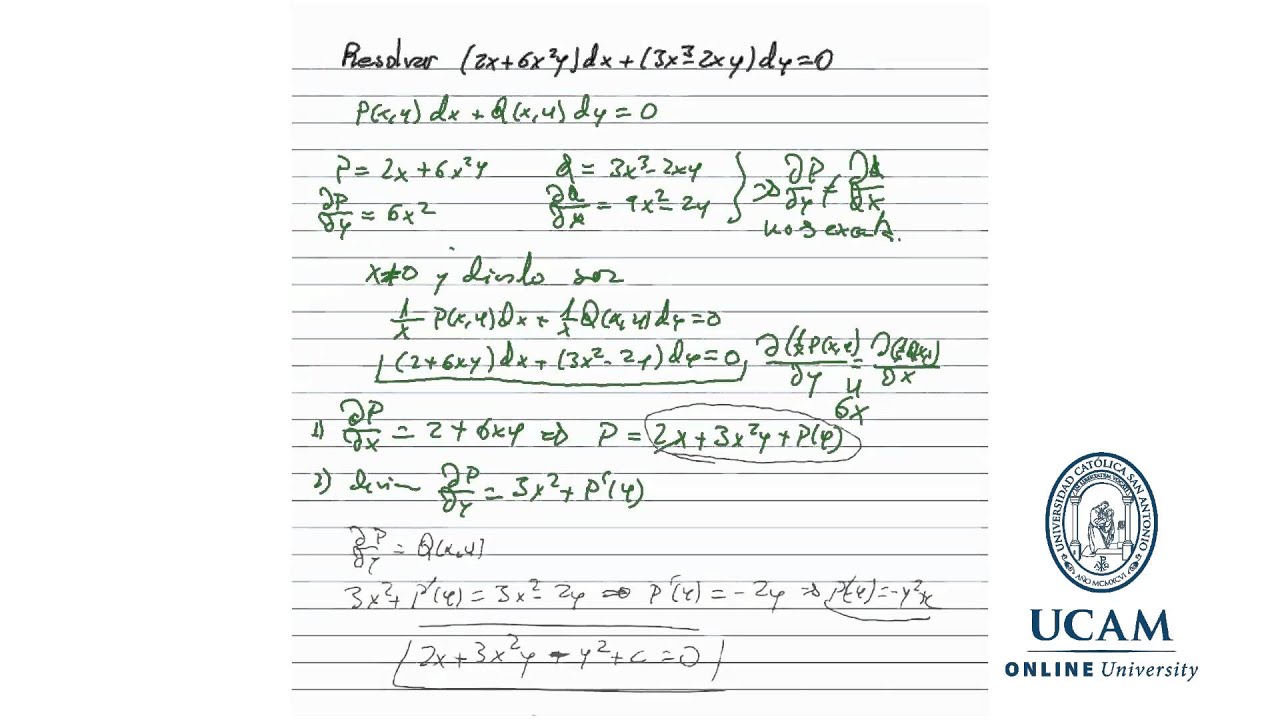 Resolver (2x+6x²y)dx+(3x³-2xy)dy=0
P(x,y)dx+Q(x,y)dy=0
P=2x+6x²y Q=3x³-2xy } ⇒ ∂P/∂y ≠ ∂Q/∂x
∂P/∂y=6x² ∂Q/∂x=9x²-2y no exact.
x≠0 y divido
1/x P(x,y)dx+1/x Q(x,y)dy=0
(2+6xy)dx+(3x²-2y)dy=0, ∂(1/x P(x,y))/∂y = ∂(1/x Q(x,y))/∂x
6x
1) ∂P/∂x=2+6xy ⇒ P=2x+3x²y+P(y)
2) ∂P/∂y=3x²+P'(y)
∂P/∂y=Q(x,y)
3x²+P'(y)=3x²-2y ⇒ P'(y)=-2y ⇒ P(y)=-y²
2x+3x²y-y²+c=0
UNIVERSIDAD CATÓLICA SAN ANTONIO
AÑO MCMXCVI
UCAM
ONLINE University